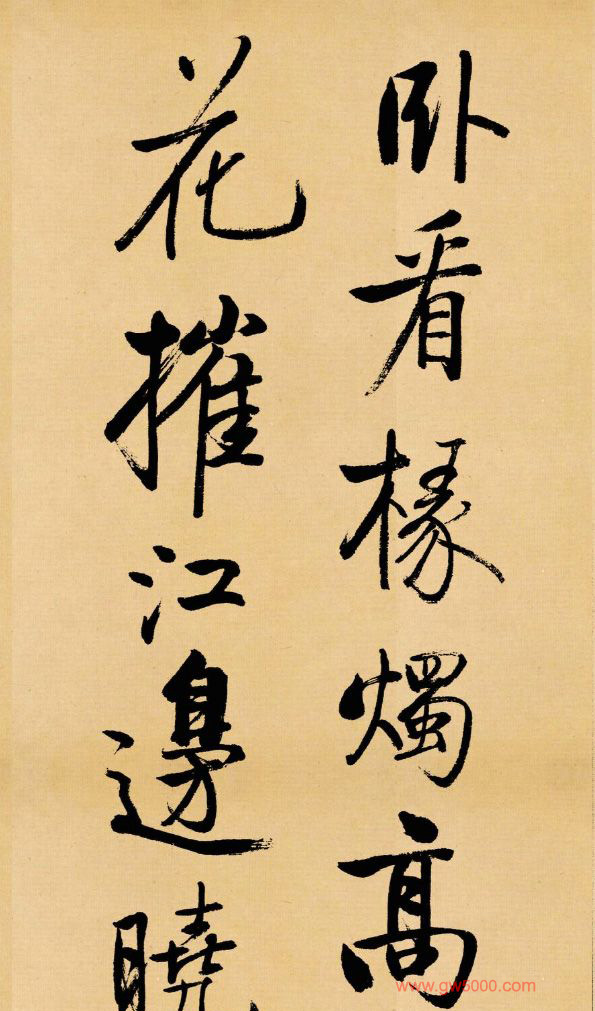 卧看椽燭高
花摧江邊曉
www.gw5000.com